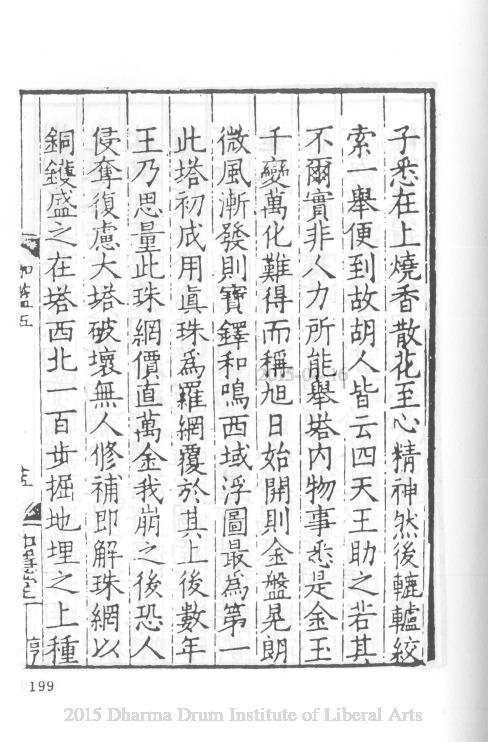 子悉在上燒香散花至心精神然後轆轤絞
索一舉便到故胡人皆云四天王助之若其
不爾實非人力所能舉塔內物事悉是金玉
千變萬化難得而稱旭日始開則金盤晃朗
微風漸發則寶鐸和鳴西域浮圖最為第一
此塔初成用真珠為羅網覆於其上後數年
王乃思量此珠網價直萬金我崩之後恐人
侵奪復慮大塔破壞無人修補即解珠網以
銅鑊盛之在塔西北一百步掘地埋之上種
199
2015 Dharma Drum Institute of Liberal Arts